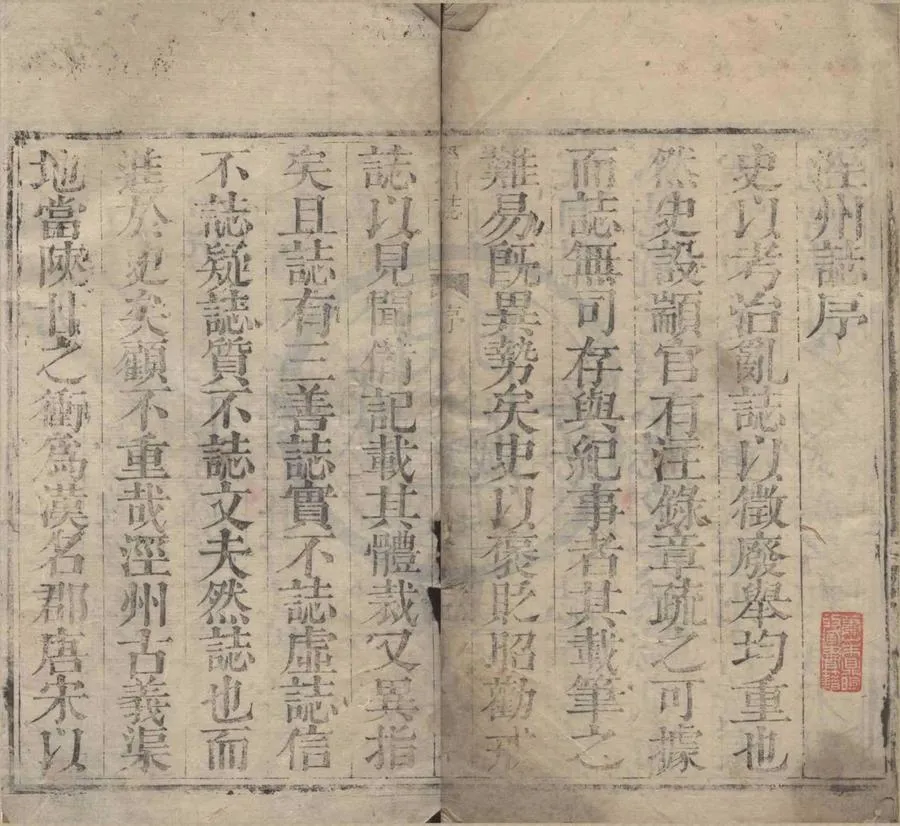 涇州誌序
史以考治亂誌以徵廢舉均重也
然史設顓官有注錄章疏之可據
而誌無可存與紀事者其載筆之
難易旣異勢矣史以褒貶昭勸戒
誌以見聞備記載其體裁又異指
矣且誌有三善誌實不誌虛誌信
不誌疑誌質不誌文夫然誌也而
進於史矣顧不重哉涇州古義渠
地當陝甘之衝爲漢名郡唐宋以
序